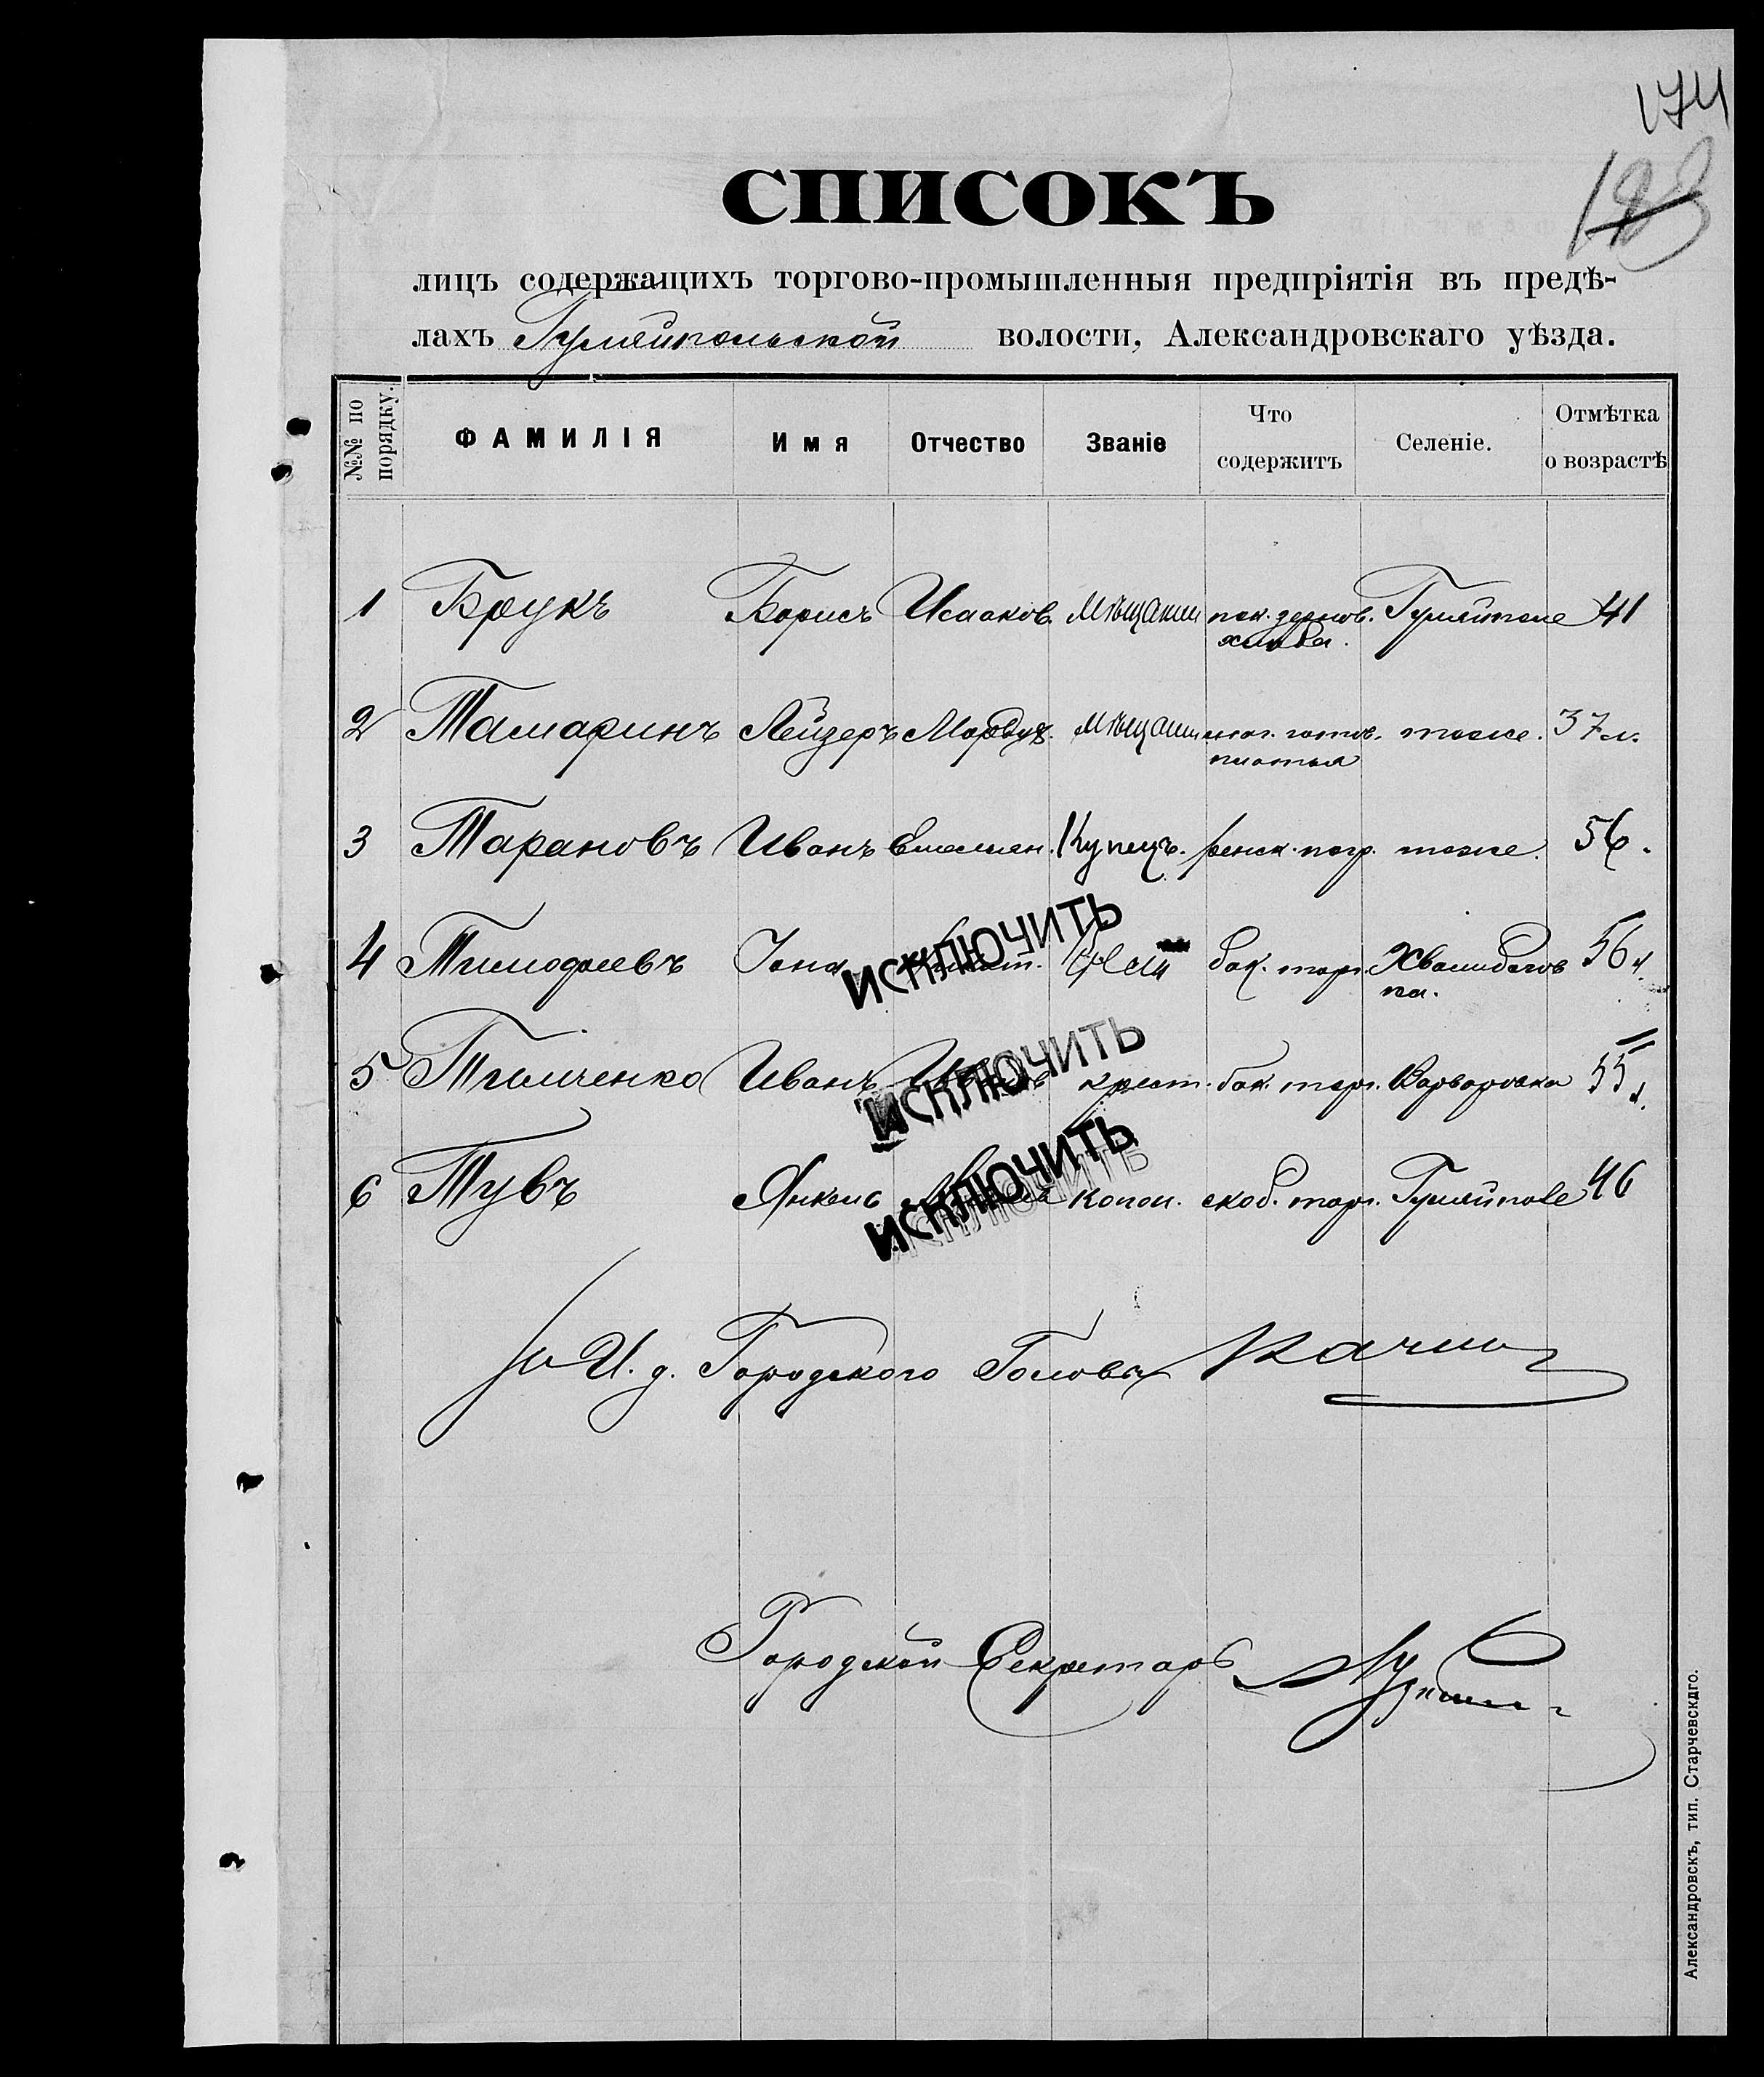 174
183
СПИСОКЪ
лицъ содержащихъ торгово-промышленныя предпріятія въ предѣ-
лахъ Гуляйпольской волости, Александровскаго уѣзда.
№№ по порядку. ФАМИЛІЯ Имя Отчество Званіе Что содержитъ Селеніе. Отмѣтка о возрастѣ
1 Брукъ Борисъ Исааков. Мѣщанин пок. зернов. хлѣба. Гуляйполе 41
2 Тамаринъ Лейзеръ Мордух. Мѣщанин маг. готов. платья тоже. 37 л.
3 Тарановъ Иванъ Емельян. Купецъ. ренск. погр. тоже. 56.
4 Тимофеевъ Іона бак. торг. Хвалибогов ка. 56 л.
ИСКЛЮЧИТЬ
5 Тимченко Иванъ крест. бак. торг. Варваровка 55 л.
ИСКЛЮЧИТЬ
6 Тувъ Янкель колон. скоб. торг. Гуляйполе 46
ИСКЛЮЧИТЬ
И. д. Городского Головы
Городской Секретарь
Александровскъ, тип. Старчевскаго.